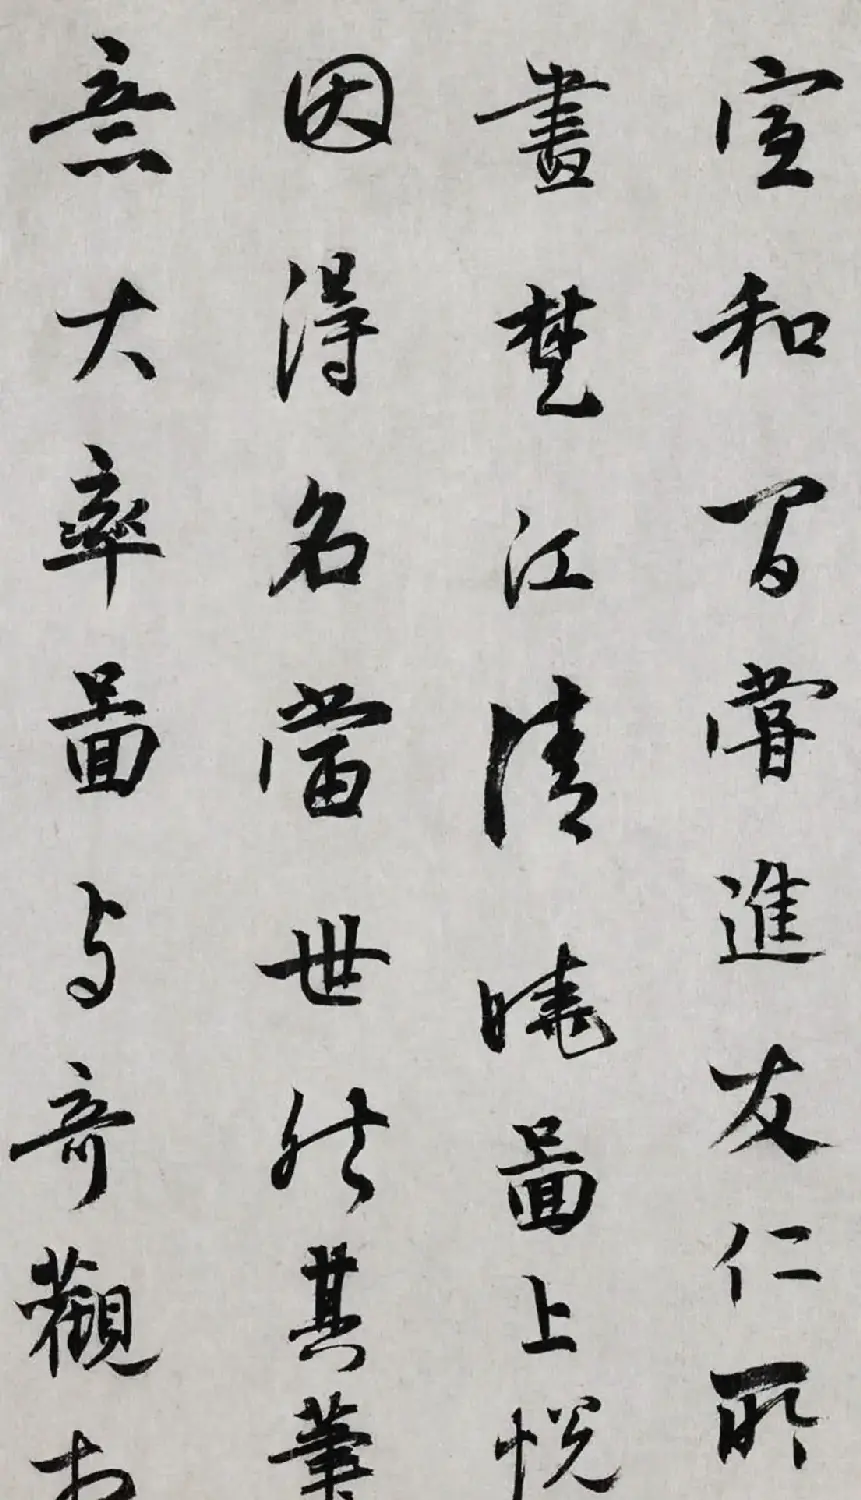 宣和間嘗進友仁所
畫楚江清曉圖上悅
因得名當世然其筆
意大率圖与奇觀相